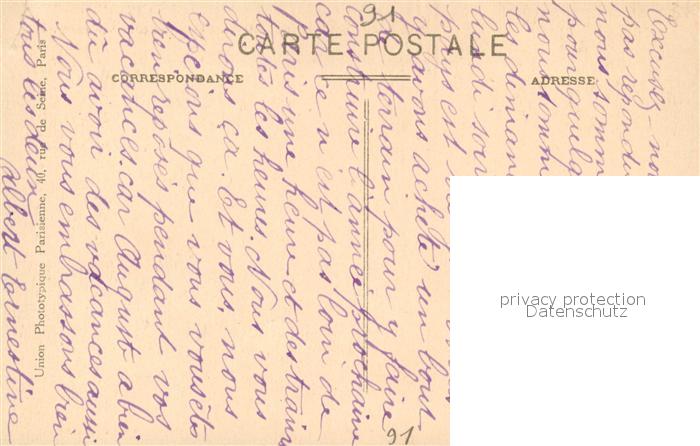 91
CARTE POSTALE
CORRESPONDANCE
ADRESSE
Union Phototypique Parisienne, 40, rue de Seine, Paris
Excusez-no
pas repondu
nous somm
pour quelq
nous somm
les diman
lundi soir
pays est
y avons acheté un bout
de terrain pour y faire
construire l'année prochaine
car ce n'est pas loin de
Paris une heure et des trains
toutes les heures. Nous vous
dirons ça. Et vous, nous
espérons que vous vous êtes
bien reposés pendant vos
vacances. car Auguste a bien
dû avoir des vacances aussi
Nous vous embrassons bien
tous les deux
Albert Ernestine
privacy protection
Datenschutz
91